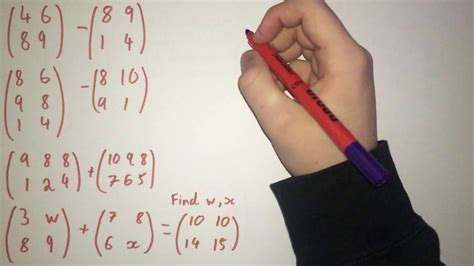 (4 6
8 9) - (8 9
1 4)
(8 6
9 8
1 4) - (8 10
9 1)
(9 8 8
1 2 4) + (10 9 8
7 6 5)
Find w, x
(3 w
8 9) + (7 8
6 x) = (10 10
14 15)